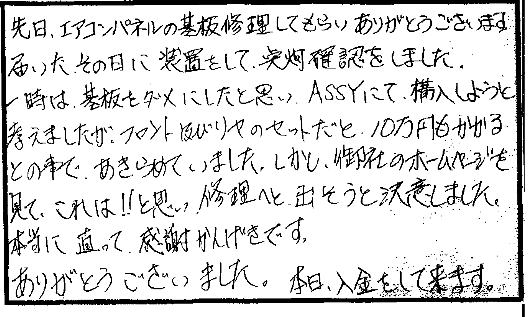 先日、エアコンパネルの基板修理してもらいありがとうございます
届いたその日に装置をして、点灯確認をしました。
一時は、基板をダメにしたと思い、ASSYにて、構入しようと
考えましたが、フロント及びリヤのセットだと、10万円もかかる
との事で、あきらめていました。しかし、御社のホームページを
見て、これは!!と思い、修理へと出そうと決意しました。
本当に直って感謝かんげきです。
ありがとうございました。本日、入金をして来ます。